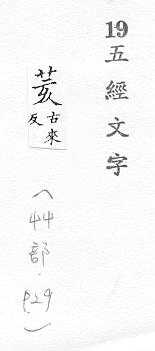 19五經文字
荄古來反
（艸部．P.29）